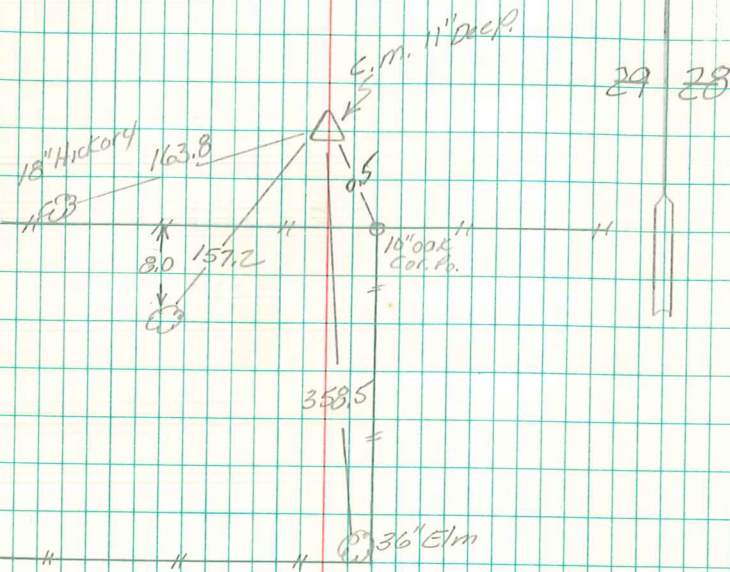 C.M. 11" Deep.
29 28
18" Hickory
163.8
0.5
8.0
157.2
10" oak
Cor. Po.
358.5
36" Elm